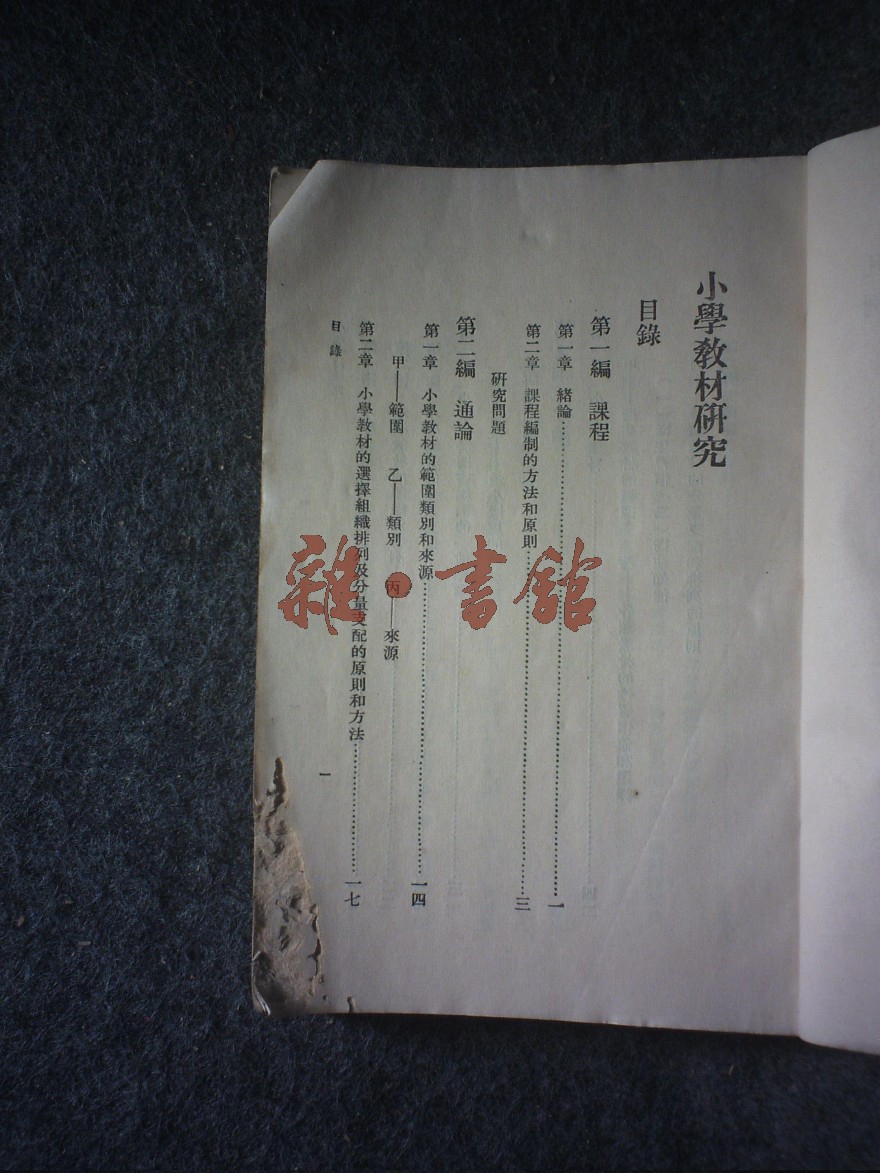 小學教材研究
目錄
第一編　課程
第一章　緒論…………一
第二章　課程編制的方法和原則…………三
研究問題
第二編　通論
第一章　小學教材的範圍類別和來源…………一四
甲——範圍　乙——類別　丙——來源
第二章　小學教材的選擇組織排列及分量支配的原則和方法…………一七
目錄
一
雜·書館